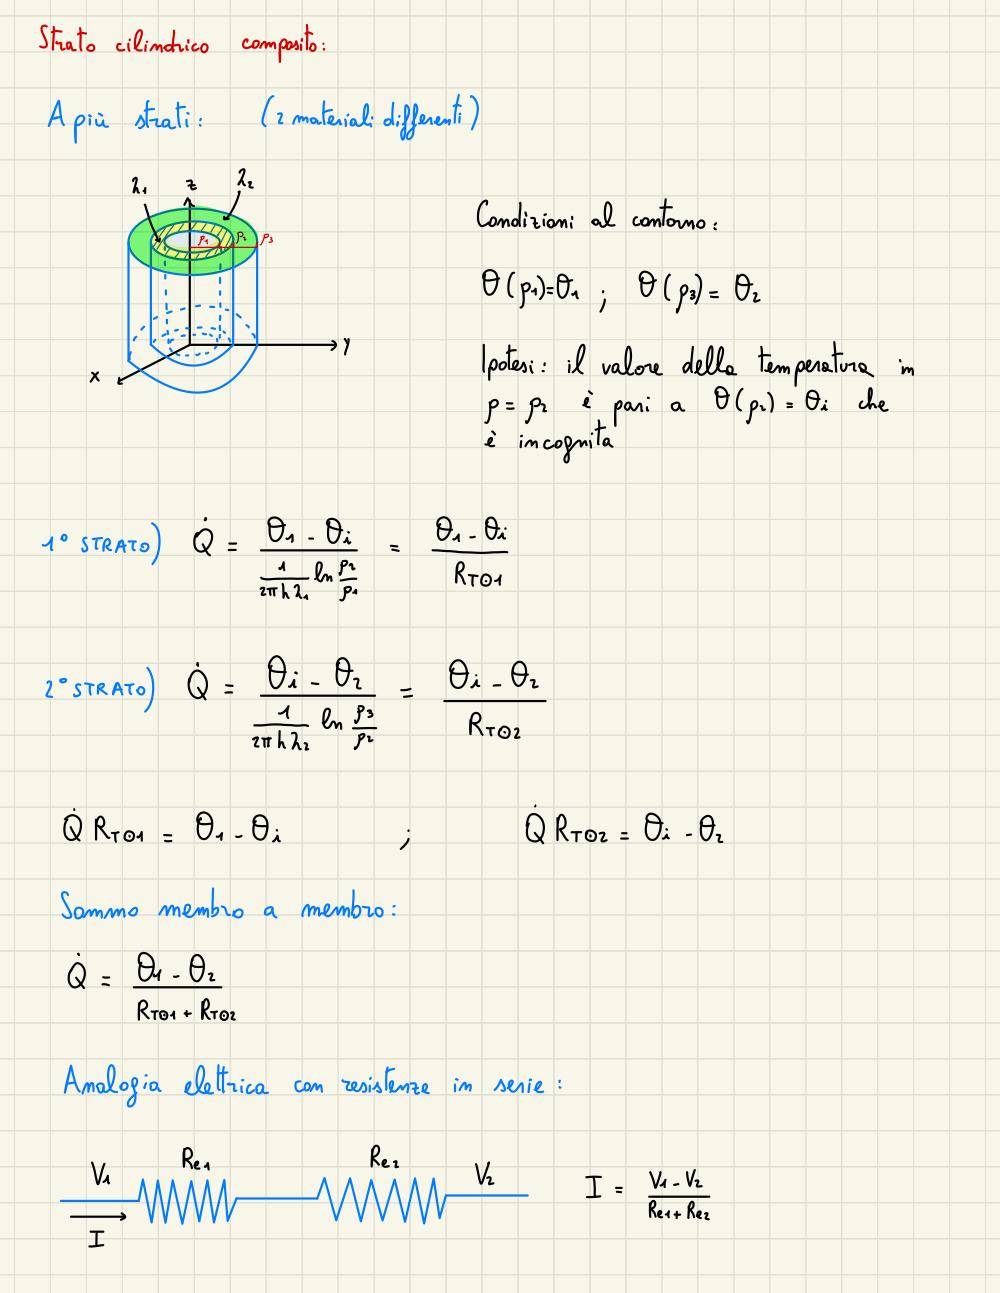 Strato cilindrico composito:
A più strati: (2 materiali differenti)
λ₁ z λ₂
ρ₁ ρ₂ ρ₃
y
x
Condizioni al contorno:
θ(ρ₁)=θ₁ ; θ(ρ₃) = θ₂
Ipotesi: il valore della temperatura in
ρ = ρ₂ è pari a θ(ρ₂) = θi che
è incognita
1° STRATO) Q̇ = (θ₁ - θi) / (1/(2πhλ₁) ln ρ₂/ρ₁) = (θ₁ - θi) / R_T⊙1
2° STRATO) Q̇ = (θi - θ₂) / (1/(2πhλ₂) ln ρ₃/ρ₂) = (θi - θ₂) / R_T⊙2
Q̇ R_T⊙1 = θ₁ - θi ; Q̇ R_T⊙2 = θi - θ₂
Sommo membro a membro:
Q̇ = (θ₁ - θ₂) / (R_T⊙1 + R_T⊙2)
Analogia elettrica con resistenze in serie:
V₁ Re₁ Re₂ V₂
I
I = (V₁ - V₂) / (Re₁ + Re₂)